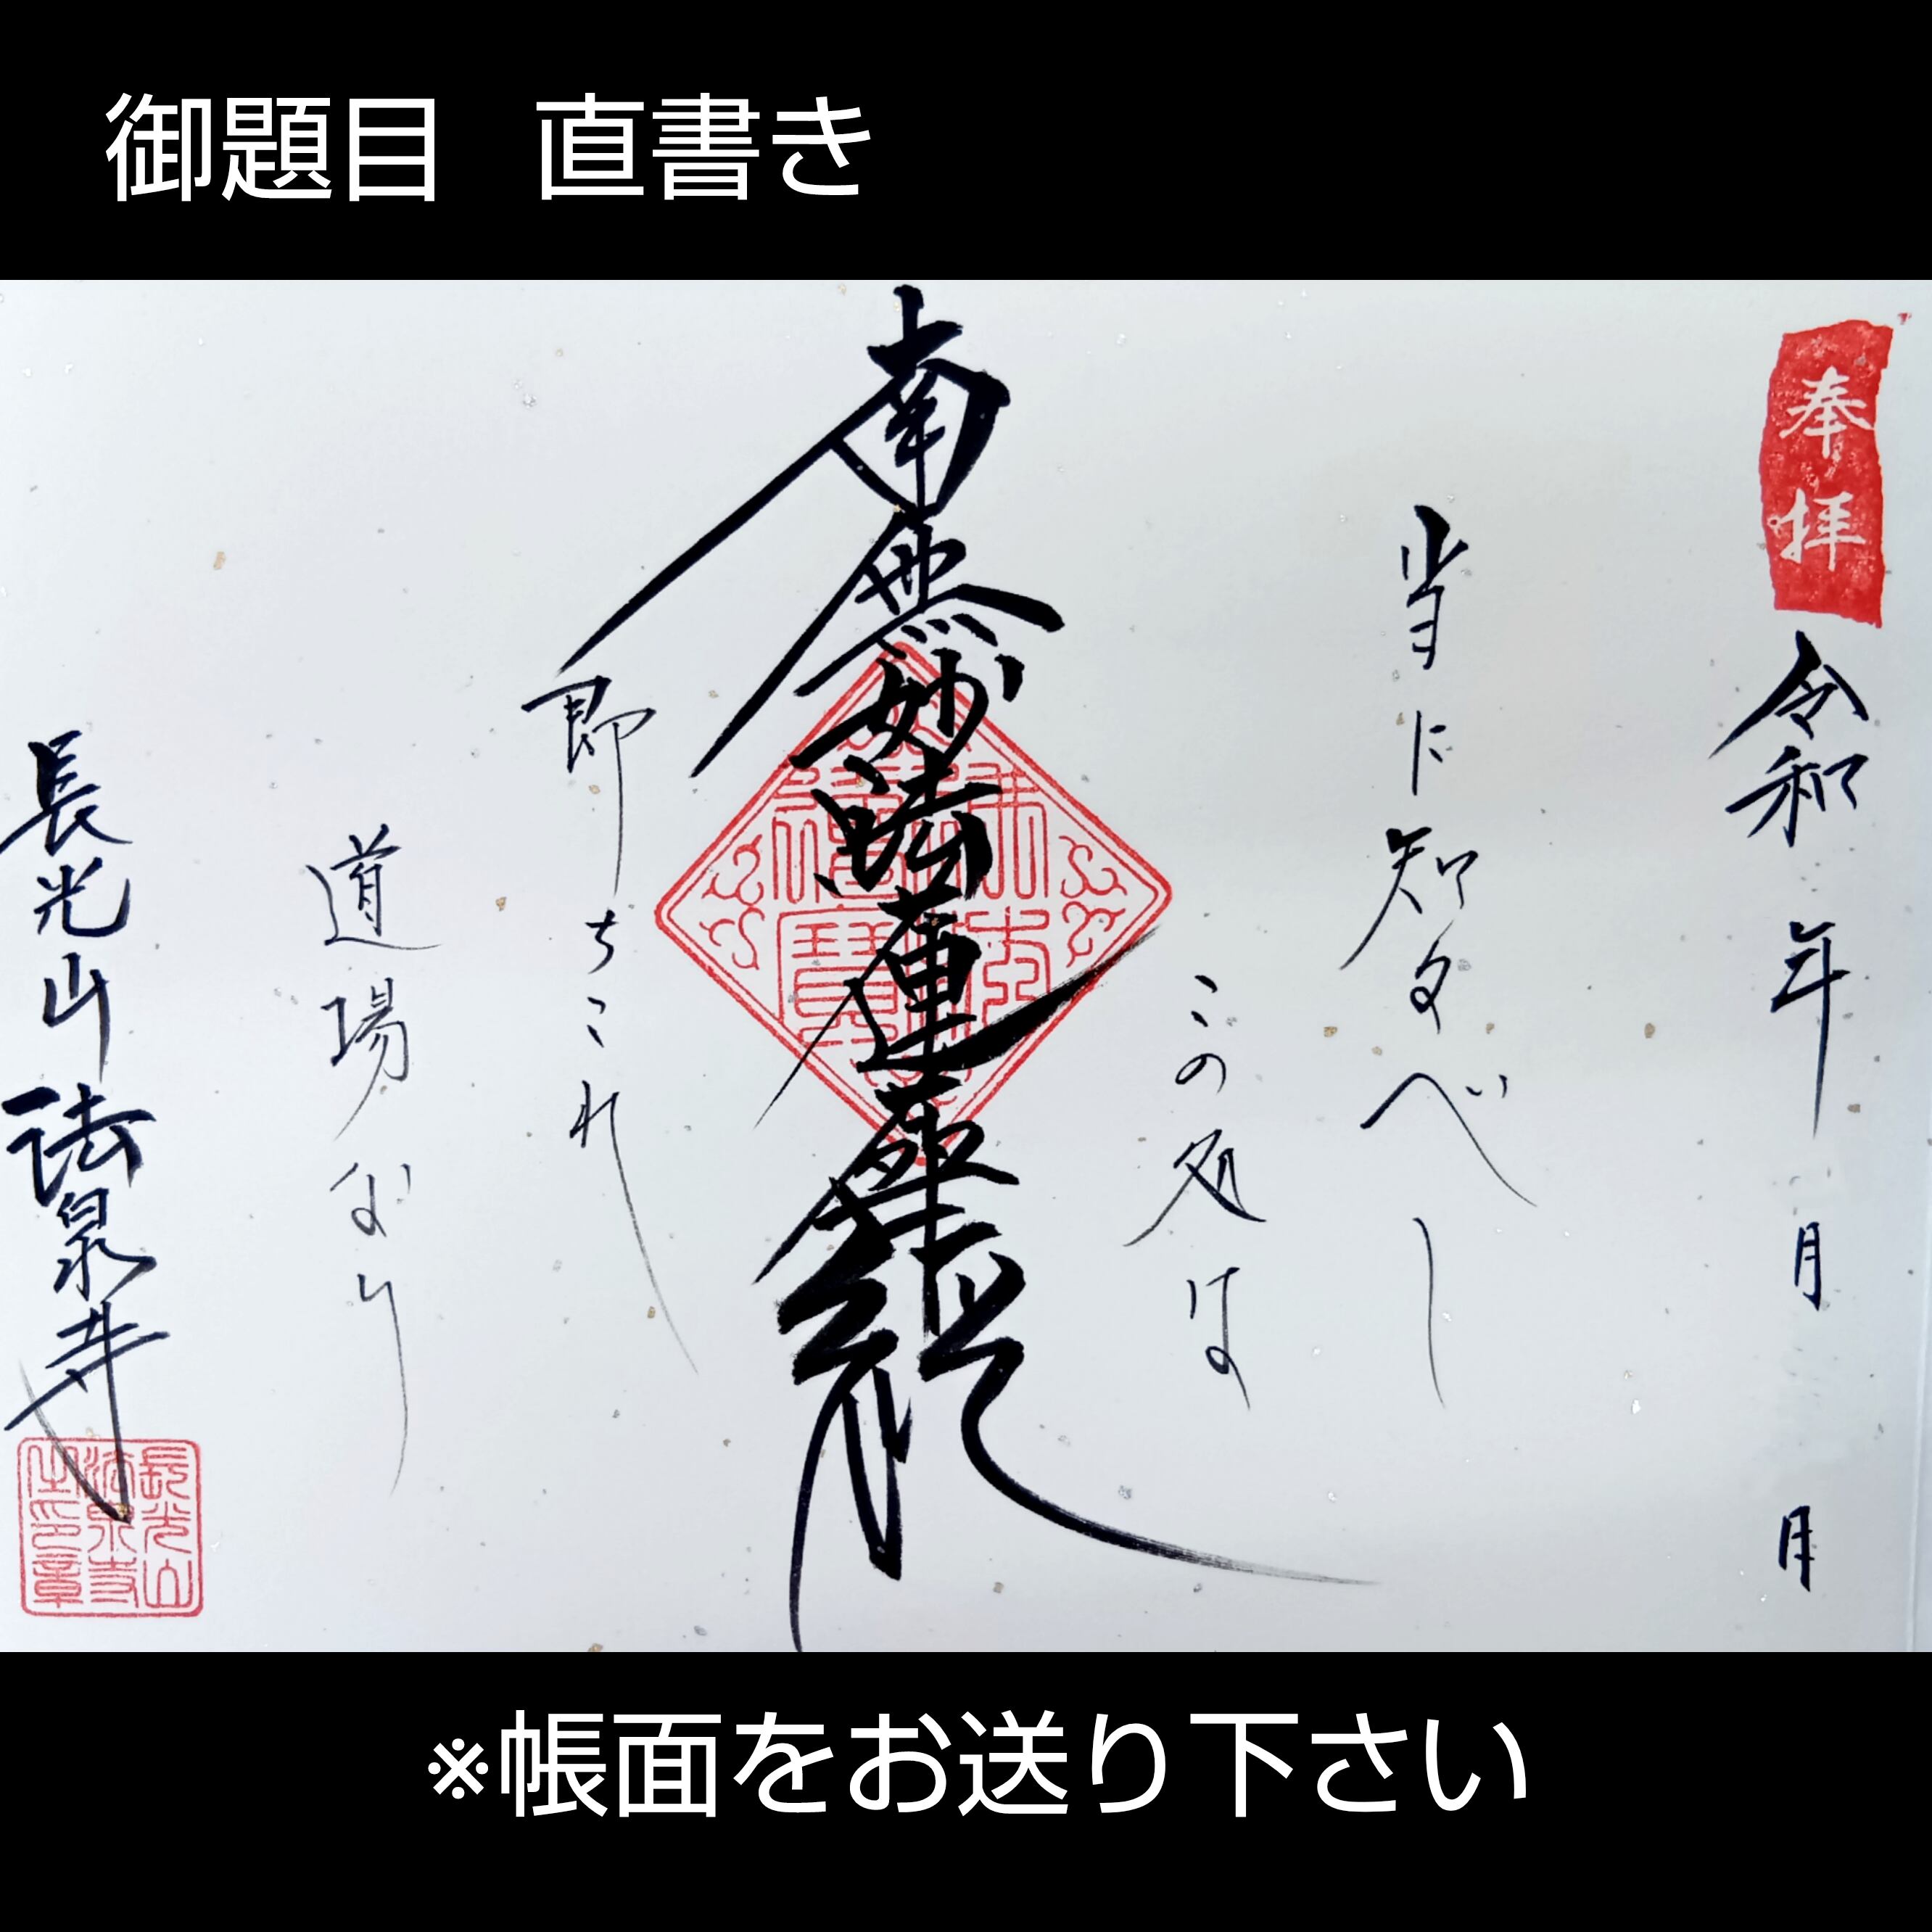 御題目 直書き
奉拝
令和 年 月 月
当に知るべし
この処は
南無妙法蓮華経
即ちこれ
道場なり
長光山法泉寺
長光山
法泉寺
之印章
※帳面をお送り下さい